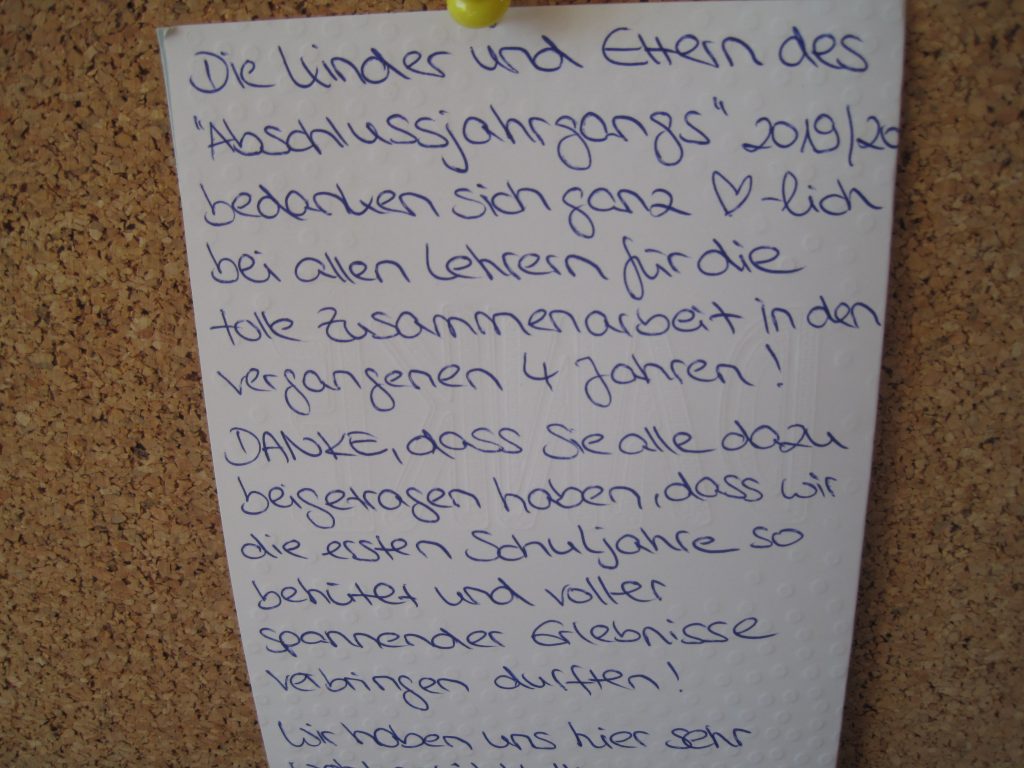 Die Kinder und Eltern des
"Abschlussjahrgangs" 2019/20
bedanken sich ganz ♡-lich
bei allen Lehrern für die
tolle Zusammenarbeit in den
vergangenen 4 Jahren!
DANKE, dass Sie alle dazu
beigetragen haben, dass wir
die ersten Schuljahre so
behütet und voller
spannender Erlebnisse
verbringen durften!
Wir haben uns hier sehr